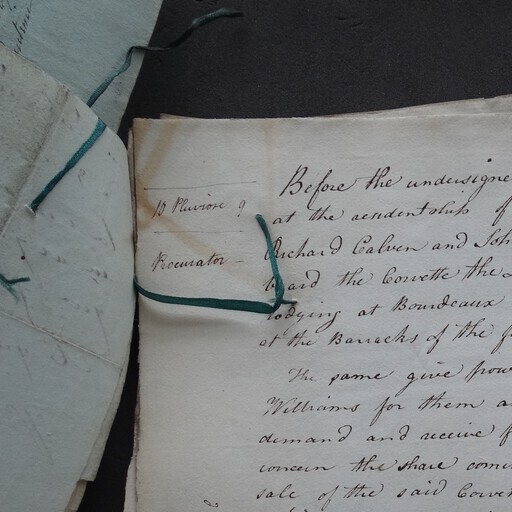 10 Pluviose 9
Procurator
Before the undersigne
at the residentship of
Richard Calven and Joh
board the Corvette the
lodging at Bourdeaux
at the Barracks of the
The same give pow
Williams for them a
demand and receive f
concern the share comi
sale of the said Corve